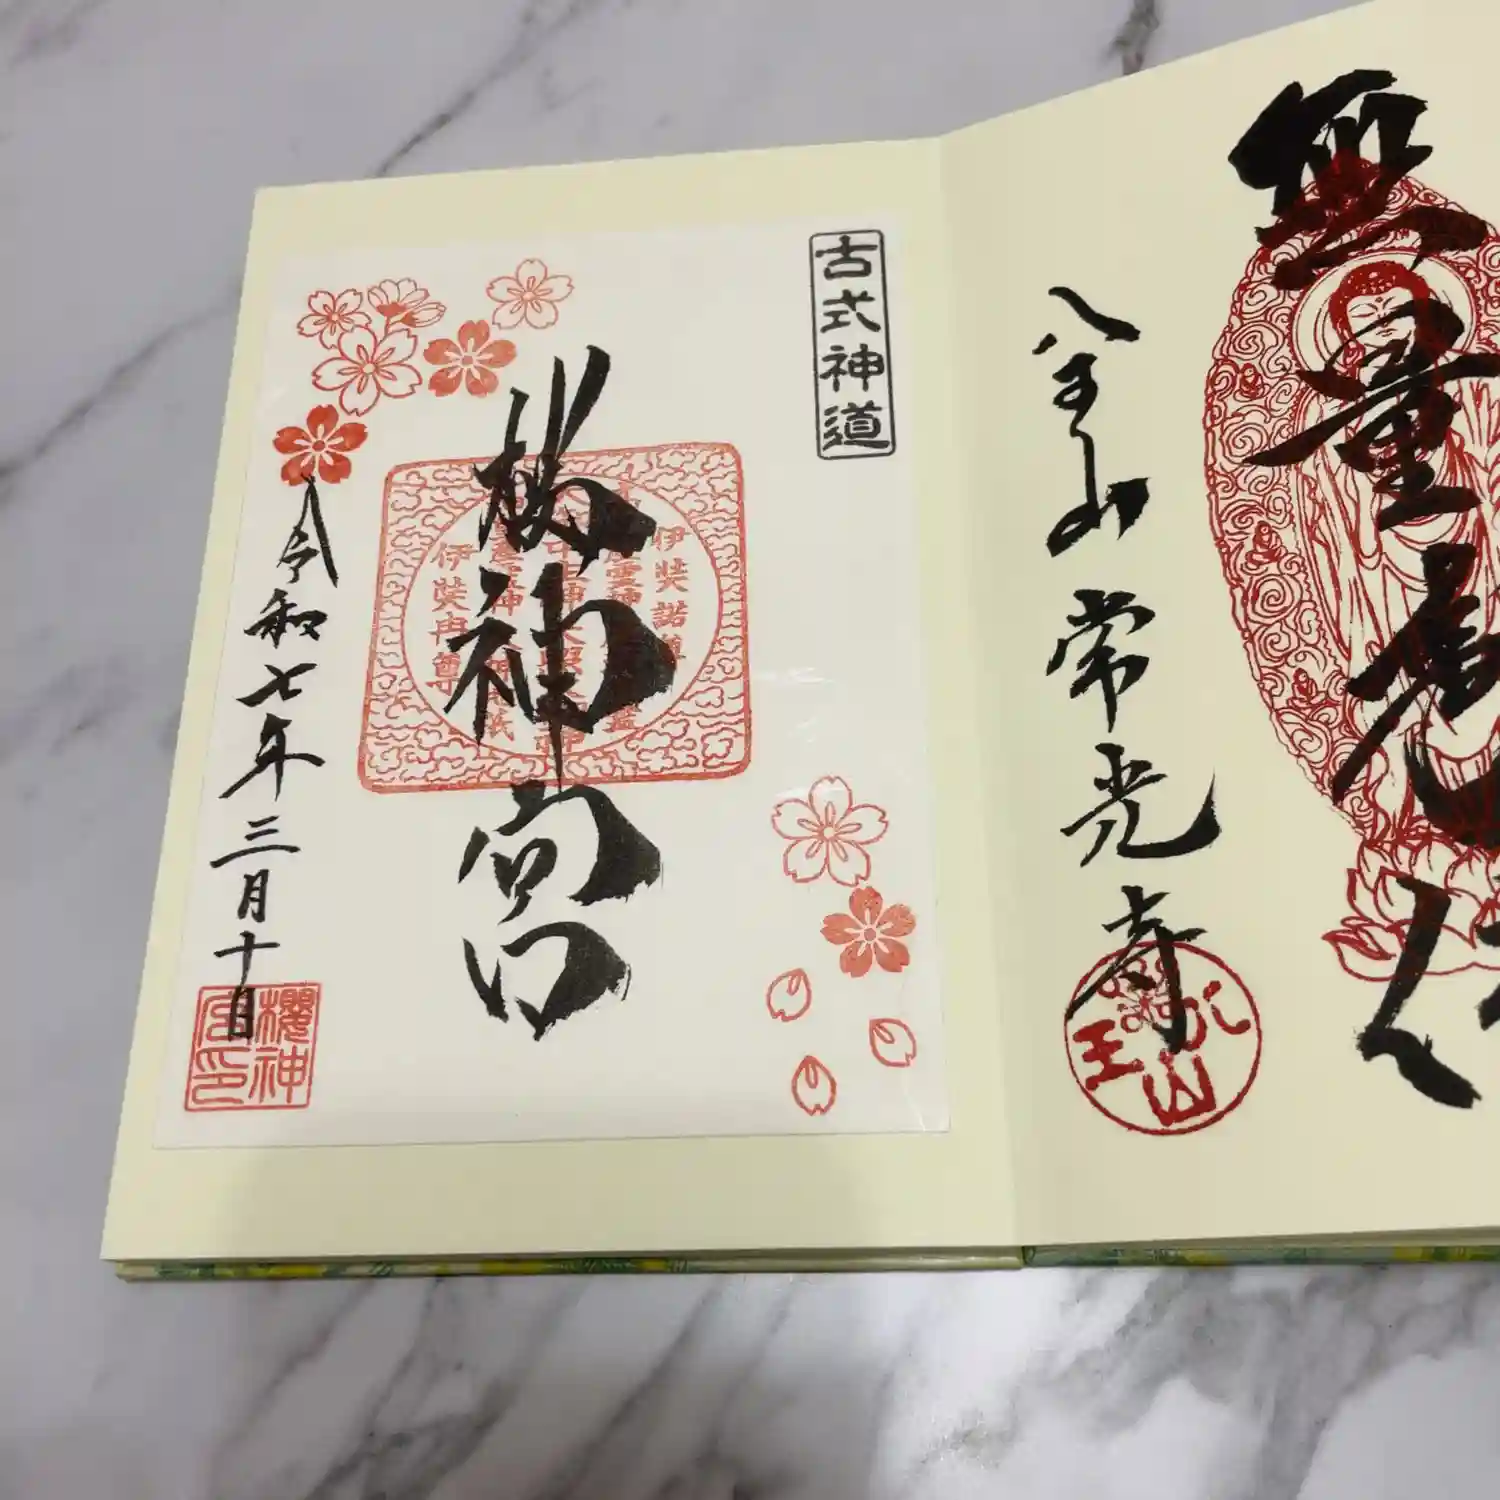 無量寿仏
八王山
常光寺
八王山
古式神道
桜神宮
伊奘諾尊
伊奘冉尊
令和七年三月十日
櫻神
宮印